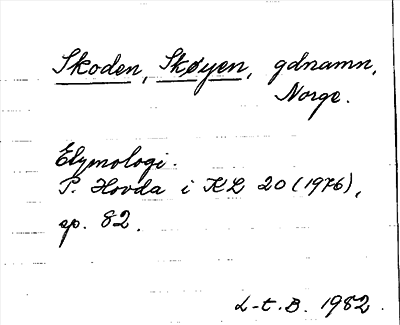 Skoden, Skøyen, gdnamn,
Norge.
Etymologi.
P. Hovda i KL 20 (1976),
sp. 82.
L-t.B. 1982.